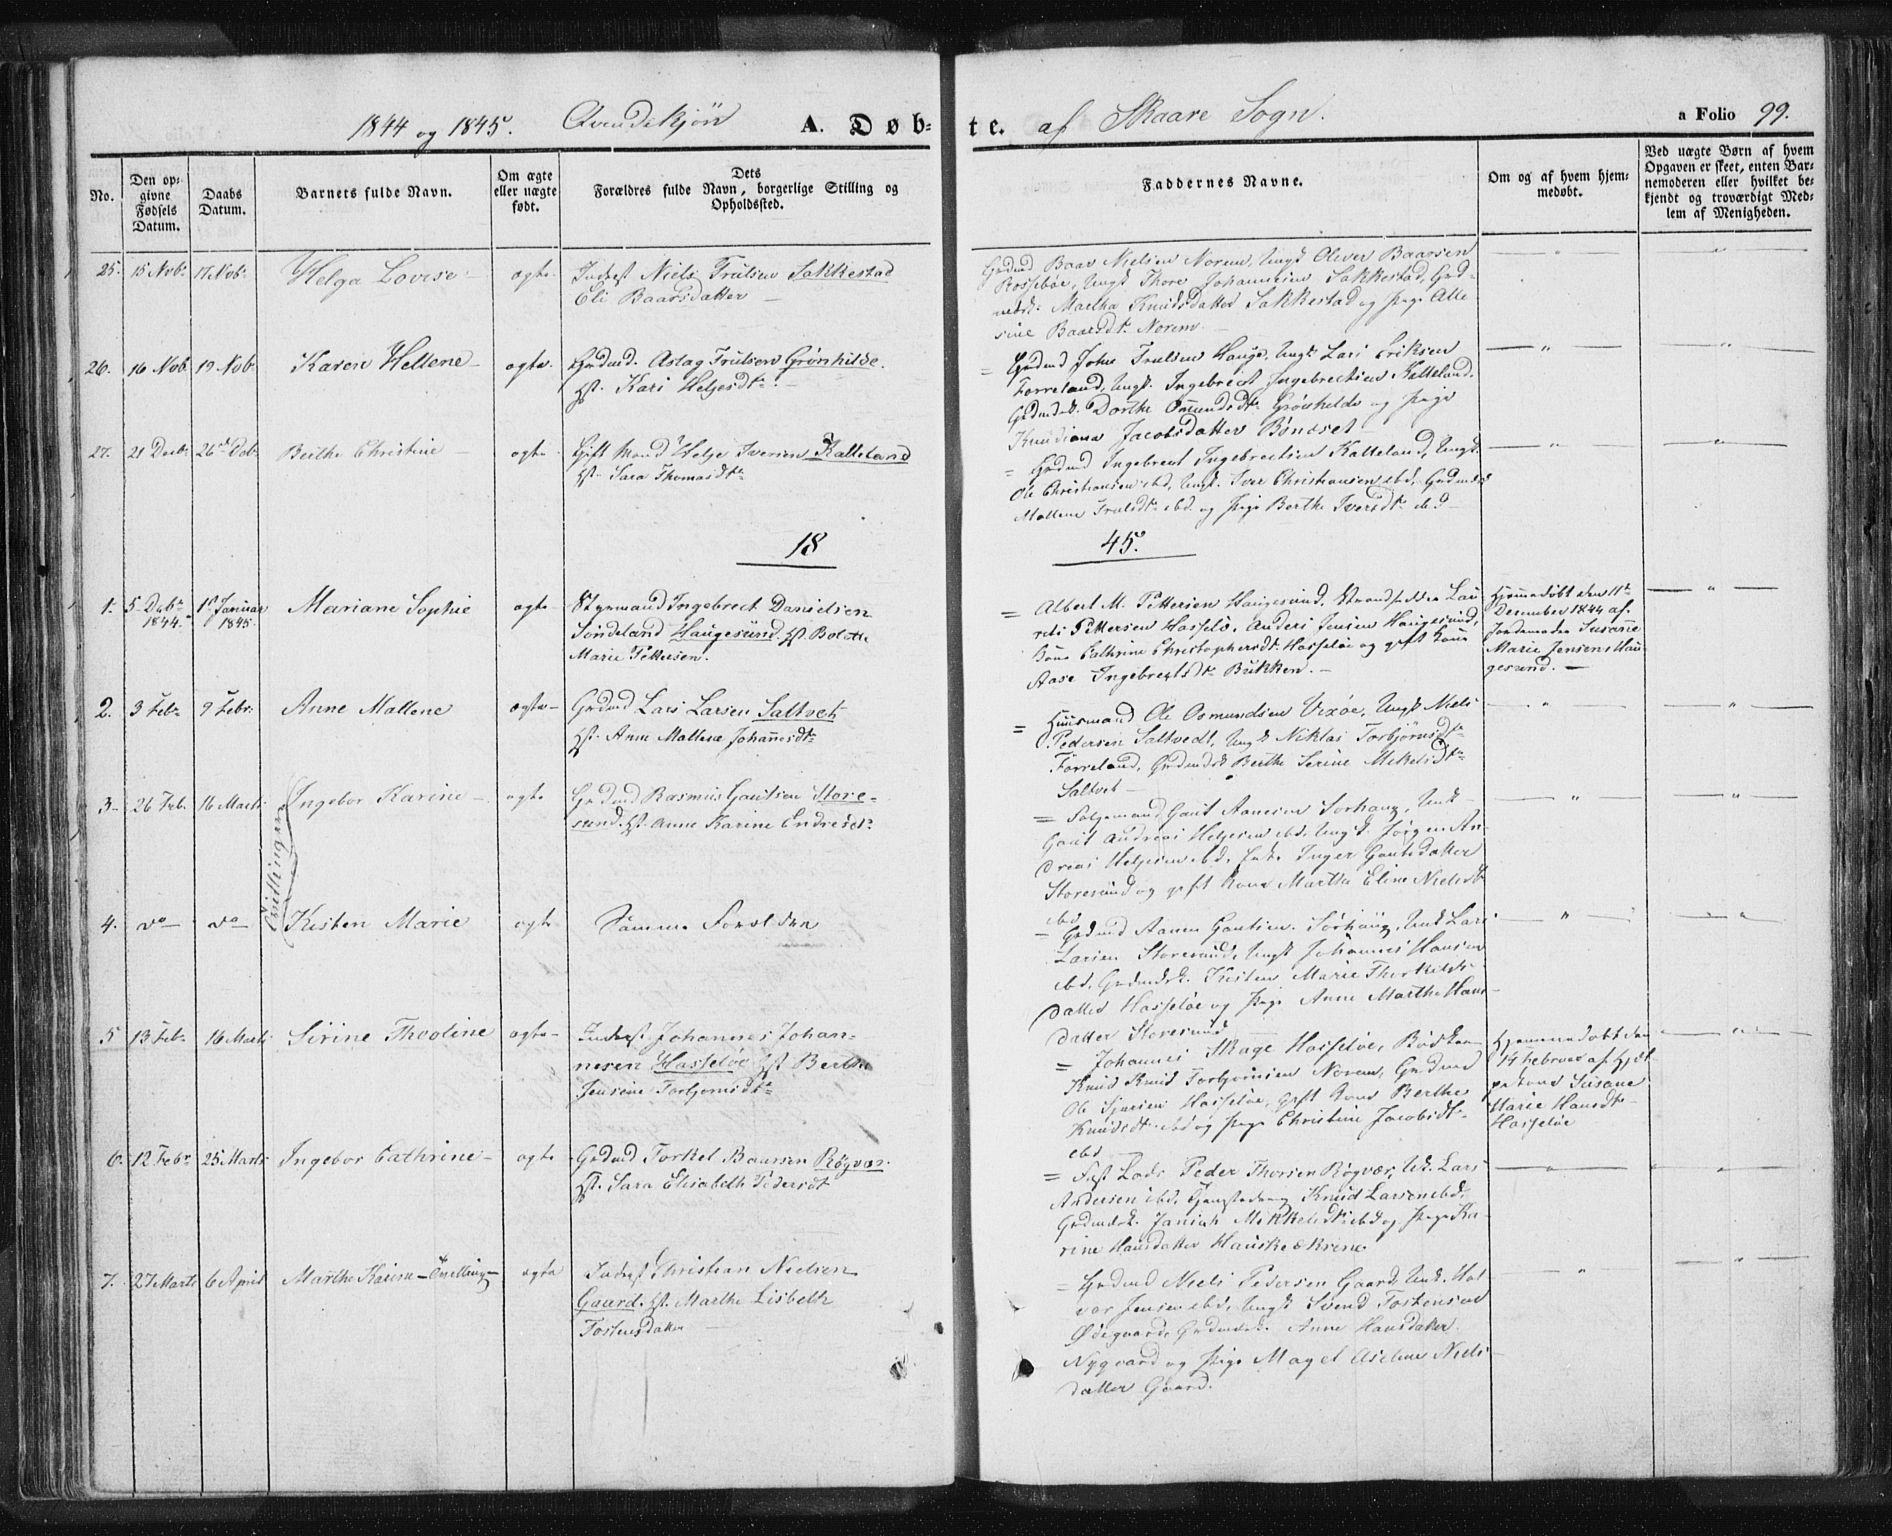 1844 og 1845. Qvindekjøn A. Døb-te. af Skaare Sogn. a Folio 99.
No.
Den op-
givne
Fødsels
Datum.
Daabs
Datum.
Barnets fulde Navn.
Om ægte
eller uægte
født.
Dets
Forældres fulde Navn, borgerlige Stilling og
Opholdssted.
Faddernes Navne.
Om og af hvem hjem-
medøbt.
Ved uægte Børn af hvem
Opgaven er skeet, enten Bar-
nemoderen eller hvilket be-
kjendt og troværdigt Med-
lem af Menigheden.
25. 15 Nvbr 17 Nvbr Helga Lovise ægte
Inderst Niels Trulsen Sakkestad
Eli Baarsdatter
Grdmd Baar Nielsen Norem, Ungk Oliver Baarsen
Rossebøe, Ungk Thore Johannesen Sakkestad, Grd-
mdsk. Martha Knudsdatter Sakkestad og Pige Alle
sine Baarsdtr Norem
26. 16 Nvb. 19 Nvb. Karen Hellene ægte
Grdmd. Aslag Trulsen Grønhilde.
Hst. Kari Helgesdtr.
= Grdmd John Trulsen Hauge, Ungk Lars Eriksen
Førreland, Ungk. Ingebrect Ingebrectsen Kalleland.
Grdmdsk. Dorthe Omundsdtr Grønhilde og Pige
Knudiana Jacobsdatter Bøndset
27. 21 Decbr 26 Dcb. Berthe Christine ægte
Gift Mand Helge Iversen Kalleland
Hst. Sara Thomasdtr
= Grdmd Ingebrect Ingebrectsen Kalleland, Ungk.
Ole Christiansen ibd, Ungk. Iver Christiansen ibd, Grdmdsk
Mallene Trulsdtr ibd og Pige Berthe Iversdtr ibd
18
45.
1. 5 Dcbr 1844. 1st Januar 1845. Mariane Sophie ægte
Styrmand Ingebrect Danielsen
Søndeland Haugesund. Hst. Bolette
Marie Pettersen.
= Albert M. Pettersen Haugesund, Strandsidder Lau
rits Pettersen Hasseløe, Anders Jensen Haugesund,
Kone Cathrine Christophersdtr Hasseløe og gift Kone
Aase Ingebregtsdtr Bukken.
Hjemmedøbt den 11te
December 1844 af
Jordemoder Susanne
Marie Jensen, Hau
gesund.
2. 3 Febr 9 Febr. Anne Mallene ægte
Grdmd Lars Larsen Saltvet
Hst. Anne Mallene Johannesdtr
= Huusmand Ole Osmundsen Vixøe, Ungk Niels
Pedersen Saltvedt, Ungk Niklas Torbjørnsd
Førreland, Grdmdsk Berthe Serine Mikelsdtr
Saltvet
3. 26 Feb. 16 Marts Ingebor Karine ægte
Tvillinger
Grdmd Rasmus Gautsen Store-
sund. Hst. Anne Karine Endresdtr.
= Selgemand Gaut Aanesen Sørhaug, Unk
Gaut Andreas Helgesen ibd, Ungk. Jørgen An-
dreas Helgesen ibd, Enke Inger Gautsdatter
Storesund og gift Kone Martha Eline Nielsdtr
ibd
4. do do Kisten Marie ægte
Samme Forældre
= Grdmd Aanen Gautsen Sørhaug, Unk Lars
Larsen Storesund, Ungk Johannes Hansen
ibd, Grdmdsk. Kisten Marie Thorkilds
datter Hasseløe og Pige Anne Marthe Hans
datter Storesund
5 13 Febr 16 Marts Sirine Theoline ægte
Inderst Johannes Johan-
nesen Hasseløe Hst Berthe
Jensine Torbjørnsdtr
= Johannes Skage Hasseløe, Bødker
Knud Knud Torbjørnsen Norem, Grdmd
Ole Sjursen Hasseløe, gift Kone Berthe
Knudsdtr ibd og Pige Christine Jacobsdtr
ibd
Hjemmedøbt den
14 Februar af Hjel-
pekone Susane
Marie Hansdtr
Hasseløe
6. 12 Febr 25 Marts Ingebor Cathrine ægte
Grdmd Torkel Baarsen Røgvær.
Hst. Sara Elisabeth Pedersdt
= Fast Lods Peder Thorsen Røgvær, Uk. Lars
Andersen ibd, Knud Larsen ibd,
Grdmdsk. Janiah Mikkelsdtr ibd og Pige Ka-
rine Hansdatter Hauskeekrine
7. 27 Marts 6 April Marthe Karine - Tvilling ægte
Inderst Christian Nielsen
Gaard. Hst. Marthe Lisbeth
Tostensdatter
= Grdmd Niels Pedersen Gaard, Unk. Hal
vor Jensen ibd, Ungk Svend Tostensen
Ødegaard, Grdmdsk. Anne Hansdatter
Nygaard og Pige Magel Aseline Niels
datter Gaard.